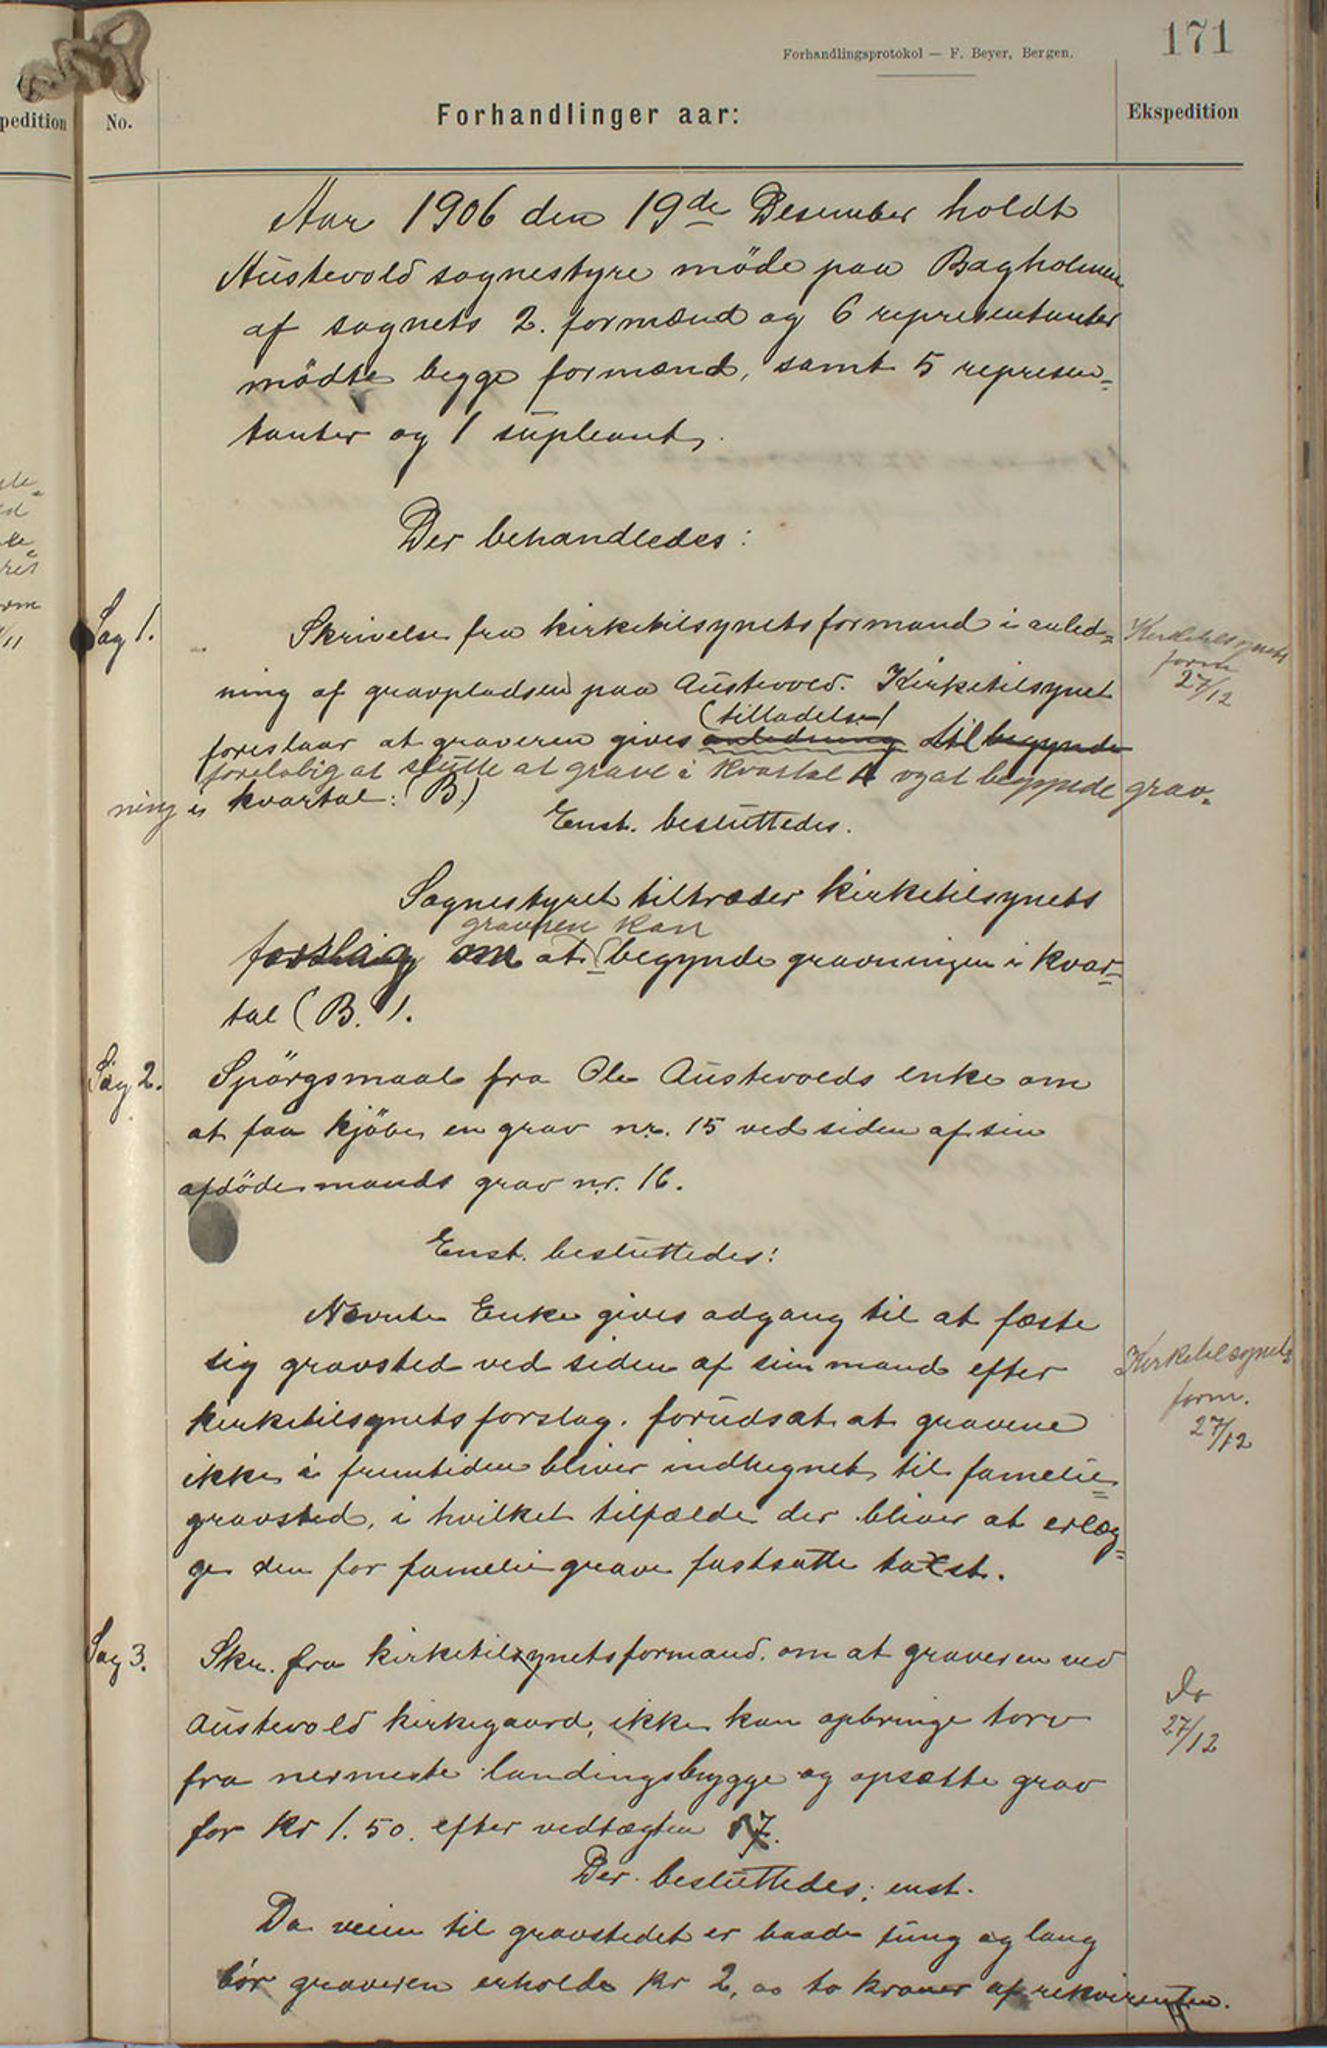 171
Forhandlingsprotokol — F. Beyer, Bergen.
pedition
No.
Forhandlinger aar:
Ekspedition
Aar 1906 den 19de Desember holdt
Austevold sognestyre möde paa Bagholmen
af sognets 2. formænd og 6 representanter
mödte begge formænd, samt 5 represen=
tanter og 1 supleant.
Der behandledes:
Sag 1.
Skrivelse fra kirketilsynets formand i anled=
Kirketilsynets
form
27/12
ning af gravpladsen paa Austevold. Kirketilsynet
(tilladelse)
foreslaar at graveren gives anledning til begynde
foreløbig at slutte at grave i kvartal A og at begynde grav=
ning i kvartal: (B.)
Enst. besluttedes.
Sognestyret tiltræder kirketilsynets
graveren kan
forslag om at begynde gravningen i kvar=
tal (B.).
Sag 2.
Spörgsmaal fra Ole Austevolds enke om
at faa kjöbe en grav nr. 15 ved siden af sin
afdöde mands grav nr. 16.
Enst. besluttedes:
Nevnte Enke gives adgang til at fæste
sig gravsted ved siden af sin mand efter
Kirketilsynets
form.
27/12
kirketilsynets forslag. forudsat at gravene
ikke i fremtiden bliver indhegnet til famelie=
gravsted, i hvilket tilfælde der bliver at erlæg=
ge den for famelie grave fastsatte taxst.
Sag 3.
Skr. fra kirketilsynets formand. om at graveren ved
Do
27/12
Austevold kirkegaard, ikke kan opbringe torv
fra nermeste landingsbrygge og opsætte grav
for kr 1.50. efter vedtægten § 7.
Der besluttedes; enst.
Da veien til gravstedet er baade tung og lang
bör graveren erholde kr 2, to kroner af rekvirenten.